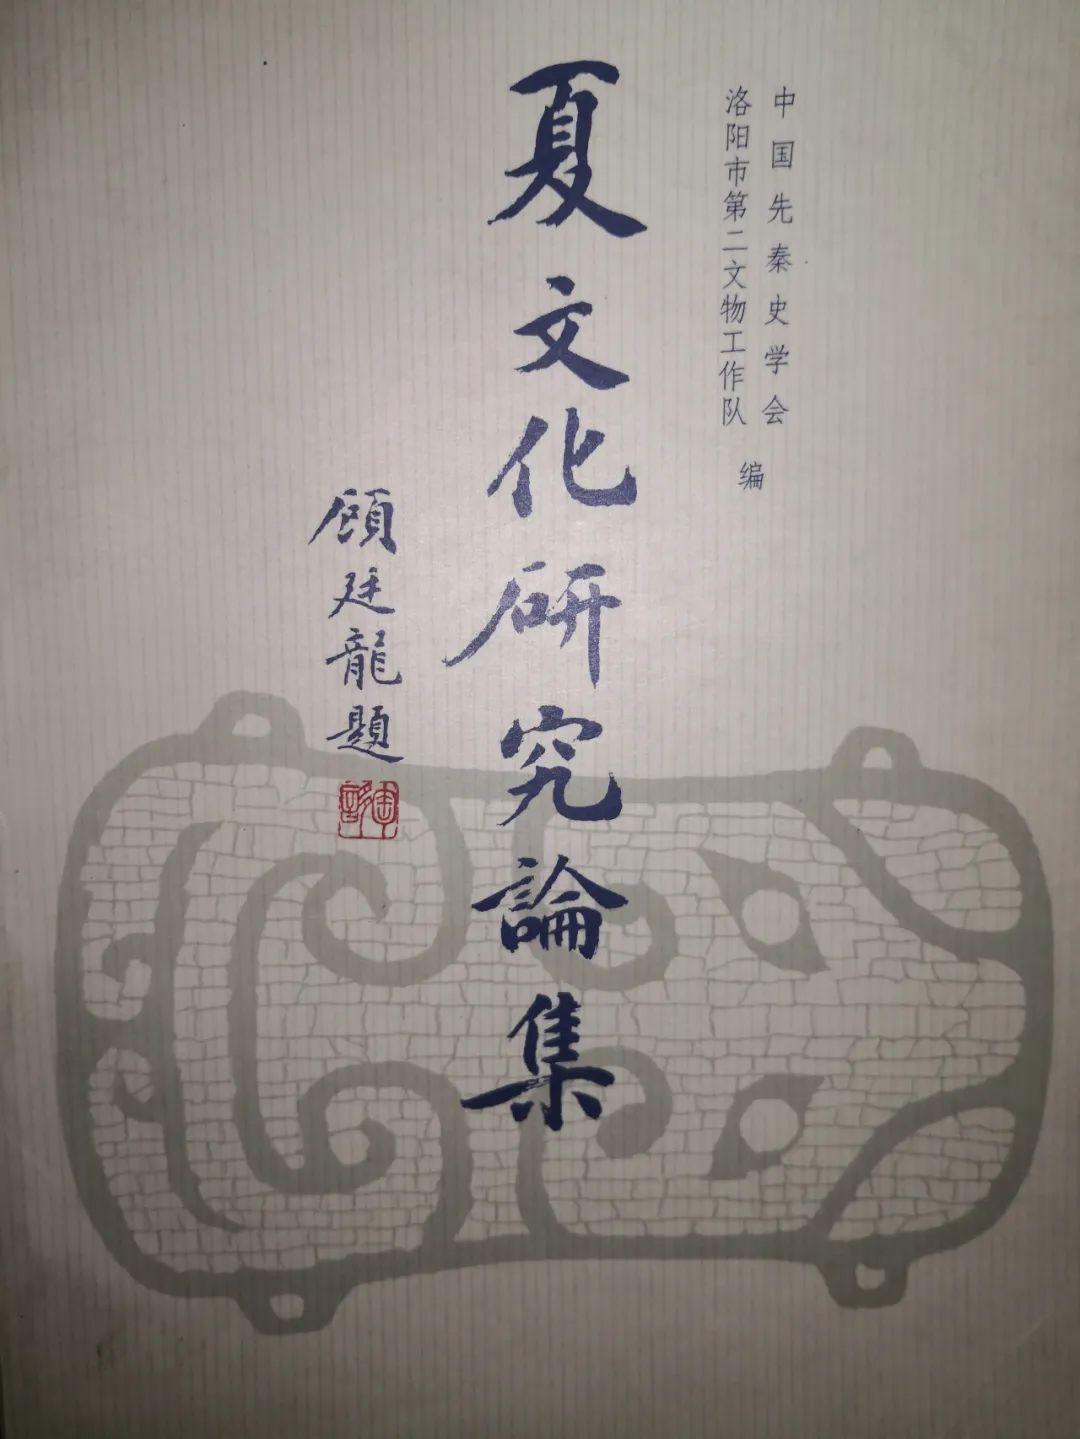 中国先秦史学会
洛阳市第二文物工作队
编
夏文化研究論集
顾廷龍題